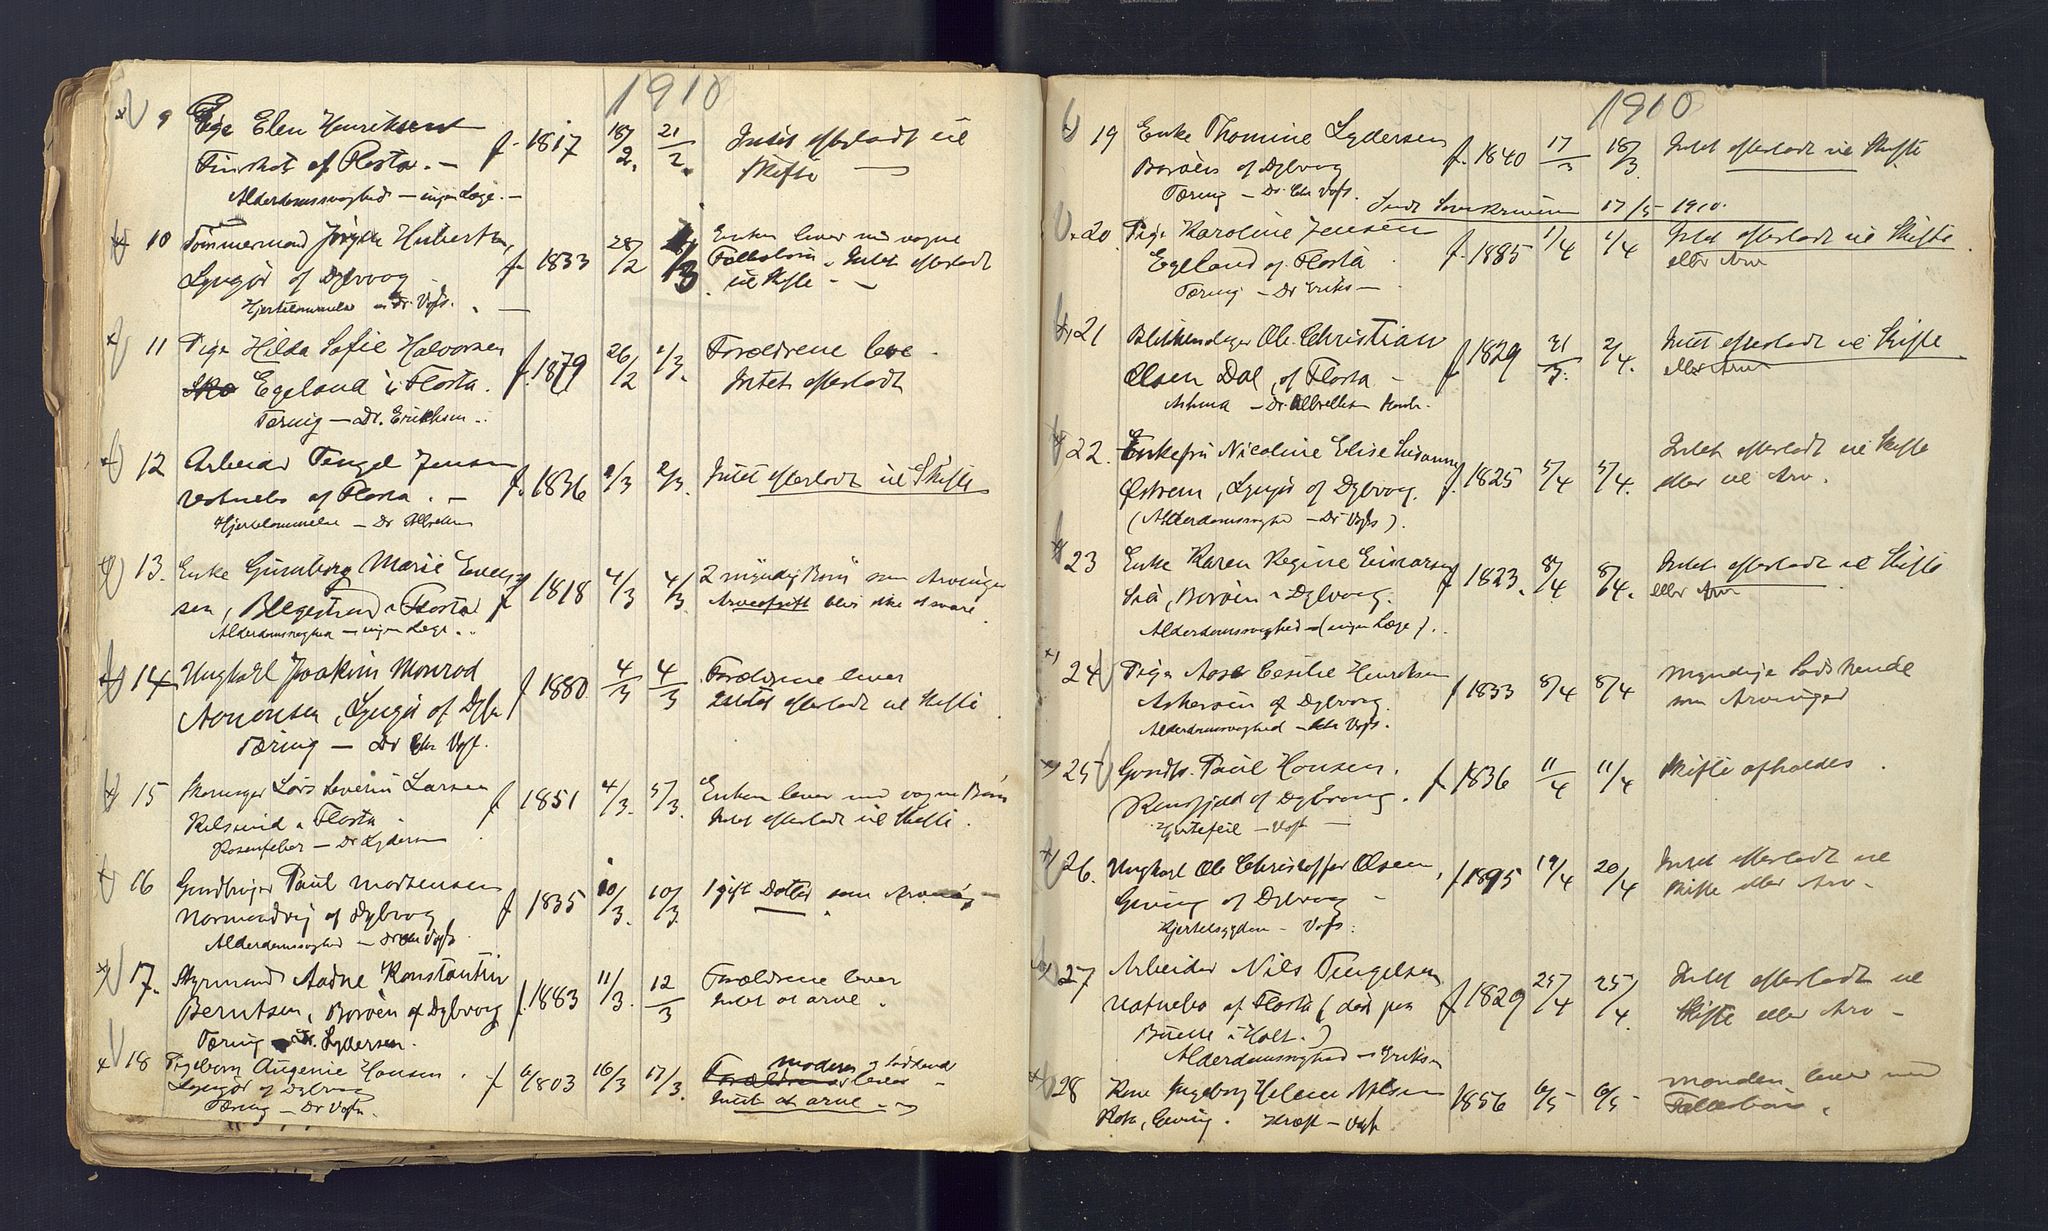 1910
9 Pige Elen Henriksen f. 1817 18/2. 21/2. Intet efterladt til
af Flosta. — Skifte —
Alderdomssvaghed — ingen Læge. —
10 Tømmermand Jørgen Hubertsen, f. 1833 28/2 1/3 Enken lever med vogne
Lyngør af Dybvog Fellesbørn. Intet efterladt
Hjertelammelse — Dr. Vogt. — til Skifte. —
11 Pige Hilda Sofie Halvorsen f. 1879 26/2 1/3. Forældrene leve.
Egeland i Flosta. Intet efterladt
Tæring — Dr. Eriksen.
12 Arbeider Tengel Jensen f. 1836 2/3 2/3. Intet efterladt til Skifte
Vatnebo af Flosta. —
Hjertelammelse — Dr Albretsen
13. Enke Gunborg Marie Even- f 1818 4/3 4/3 2 myndig Børn som Arvinger
sen, i Flosta Arveafgift blir ikke at svare
Alderdomssvaghed — ingen Læge.
14 Ungkarl Joakim Monrad f 1880 4/3 4/3 Forældrene lever
Aronsen, Lyngør af Dybv. Intet efterladt til Skifte.
Tæring — Dr Chr Vogt.
15 Lars Severin Larsen f 1851 4/3. 5/3. Enken lever med vogne Børn
Kilsund i Flosta. Intet efterladt til Skifte.
Rosenfeber — Dr Lydersen
16 Gaardbruger Paul Mortensen f. 1835 10/3. 10/3. 1 gift Dotter som Arving —
Normandvig af Dybvog
Alderdomssvaghed — Dr Chr Vogt
17. Styrmand Aadne Konstantin f. 1883 11/3. 12/3 Forældrene lever
Berntsen, Borøen af Dybvog Intet at arve.
Tæring — Dr. Lydersen.
18 Pigebarn Augenie Hansen. f 1903 16/3 17/3. Moderen og Sødskende
Lyngør af Dybvog lever —
Tæring — Dr Vogt. Intet at arve. —
1910
19 Enke Thomine Lydersen f. 1840 17/3 18/3. Intet efterladt til Skifte
Borøen af Dybvog
Tæring — Dr. Chr Vogt.
Sendt Sorenskriveren 17/5 1910.
20. Pige Karoline Jensen f. 1895 1/4 1/4 Intet efterladt til Skifte
Egeland af Flosta. eller Arv
Tæring — Dr Eriks —
21 Blikkenslager Ole Christian f 1829 31/3. 2/4. Intet efterladt til Skifte
Olsen Dal, af Flosta — eller Arv
Astma — Dr. Albretsen
22. Enkefru Nicoline Elise Susanne f. 1825 5/4 5/4. Intet efterladt til Skifte
Østrem, Lyngør af Dybvog. eller til Arv.
(Alderdomssvaghed — Dr Vogt).
23 Enke Karen Regine Einarsen f 1823. 8/4 8/4. Intet efterladt til Skifte
Borøen i Dybvog. eller Arv
Alderdomssvaghed — (ingen Læge).
24 Pige Aase Cecilie Henriksen f 1833 8/4 8/4 Myndige Sødskende
Askerøen af Dybvog. som Arvinger
Alderdomssvaghed — Chr Vogt.
25 Gaardb. Paul Hansen. f. 1836 11/4 11/4 Skifte afholdes.
af Dybvog.
Hjertefeil — Vogt —
26. Ungkarl Ole Christoffer Olsen, f 1895 19/4 20/4 Intet efterladt til
Gjeving af Dybvog — Skifte eller Arv —
Hjertesygdom — Vogt.
27 Arbeider Nils Tengelsen f 1829 25/4 25/4. Intet efterladt til
Vatnebo af Flosta (død paa Skifte eller Arv —
i Holt.)
Alderdomssvaghed — Eriksen
28 Kone Ingeborg Helene Nilsen 1856 6/5 6/5 Manden lever med
Gjeving. Kræft — Vogt Fellesbørn.